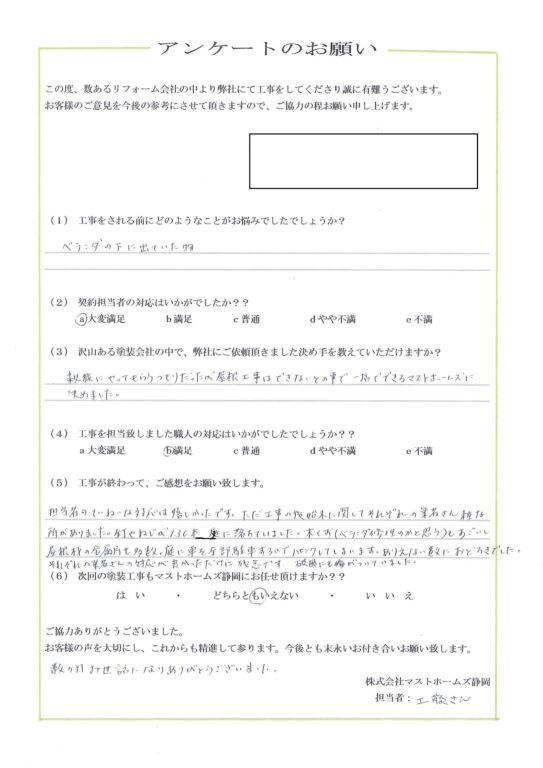 アンケートのお願い
この度、数あるリフォーム会社の中より弊社にて工事をしてくださり誠に有難うございます。
お客様のご意見を今後の参考にさせて頂きますので、ご協力の程お願い申し上げます。
(1) 工事をされる前にどのようなことがお悩みでしたでしょうか？
ベランダの下に出ていた
(2) 契約担当者の対応はいかがでしたか？？
a大変満足 b満足 c普通 dやや不満 e不満
(3) 沢山ある塗装会社の中で、弊社にご依頼頂きました決め手を教えていただけますか？
親族にやってもらうつもりだったが屋根工事はできないとの事で一括でできるマストホームズに
決めました。
(4) 工事を担当致しました職人の対応はいかがでしたでしょうか？？
a大変満足 b満足 c普通 dやや不満 e不満
(5) 工事が終わって、ご感想をお願い致します。
担当者のていねいな対応は嬉しかったです。ただ工事の後始末に関してそれぞれの業者さん雑な
所がありました。釘やねじが130本 庭に落ちていました。木くず(ベランダ修理のかと思う)もすごいし
屋根材の金属片も多数。庭に車を全部駐車するのでパンクしてしまいます。ありえない数におどろきでした。
それぞれの業者さんの対応が良かっただけに残念です。破風にも傷がついていました。
(6) 次回の塗装工事もマストホームズ静岡にお任せ頂けますか？？
はい ・ どちらともいえない ・ いいえ
ご協力ありがとうございました。
お客様の声を大切にし、これからも精進して参ります。今後とも末永いお付き合いお願い致します。
数か月お世話になりありがとうございました。
株式会社マストホームズ静岡
担当者：工藤さん